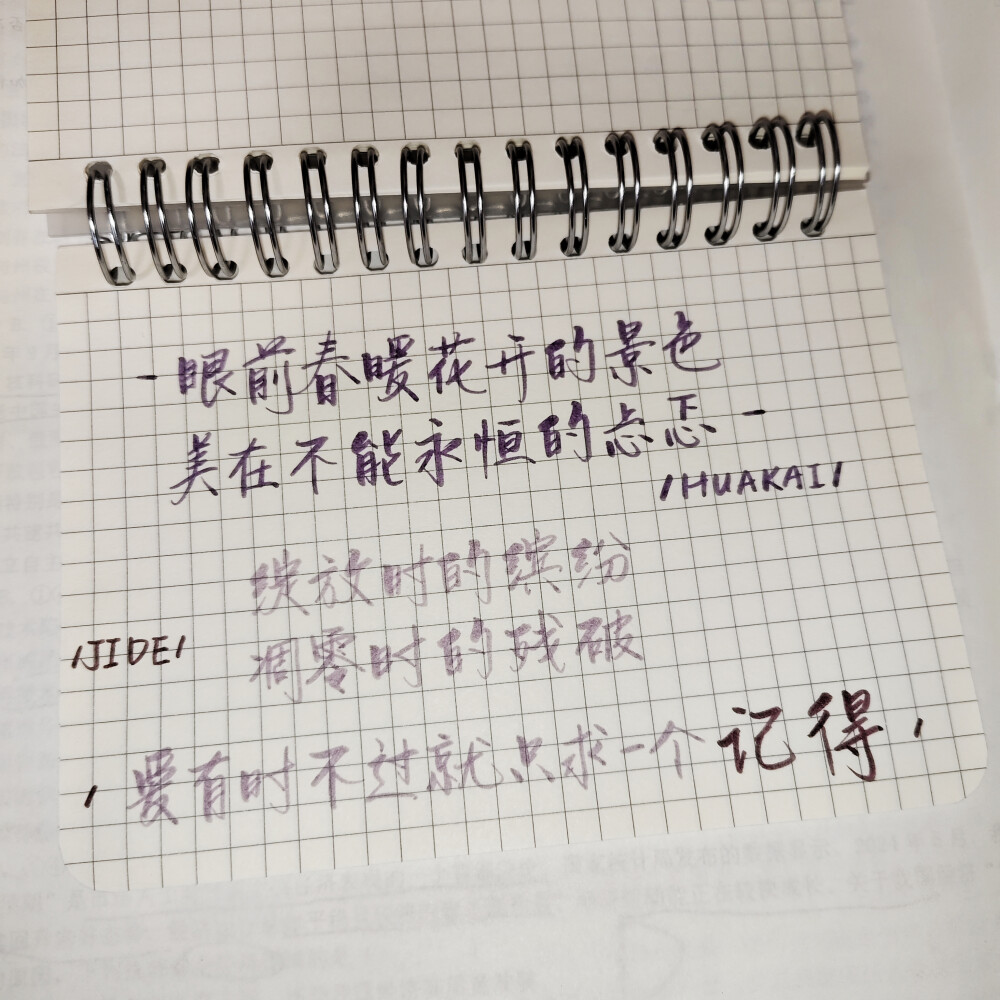 - 眼前春暖花开的景色
美在不能永恒的忐忑 -
/HUAKAI/
绽放时的缤纷
/JIDE/
凋零时的残破
, 爱有时不过就只求一个记得,